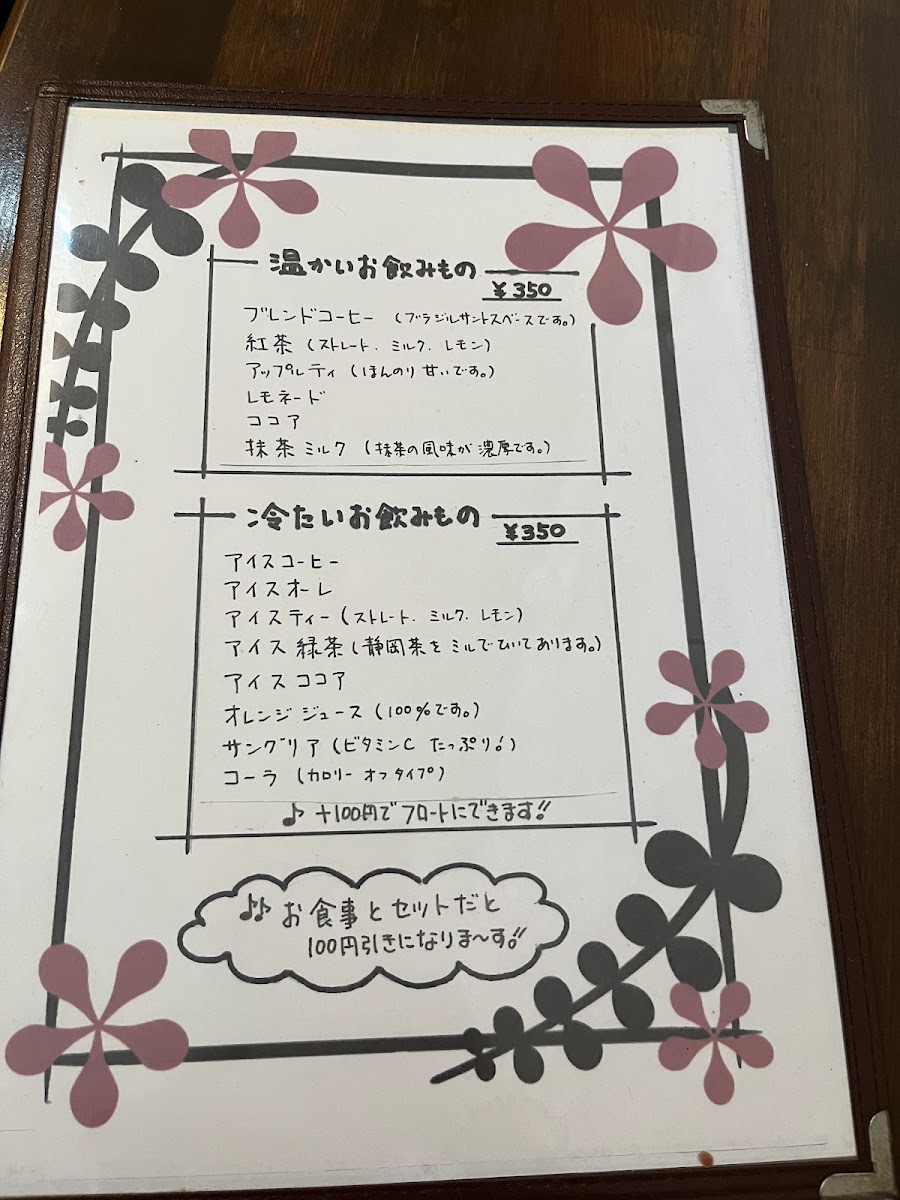 温かいお飲みもの
¥350
ブレンドコーヒー (ブラジルサントスベースです。)
紅茶 (ストレート、ミルク、レモン)
アップルティ (ほんのり甘いです。)
レモネード
ココア
抹茶ミルク (抹茶の風味が濃厚です。)
冷たいお飲みもの
¥350
アイスコーヒー
アイスオーレ
アイスティー (ストレート、ミルク、レモン)
アイス緑茶 (静岡茶をミルでひいております。)
アイスココア
オレンジジュース (100%です。)
サングリア (ビタミンC たっぷり!)
コーラ (カロリーオフタイプ)
♪ +100円でフロートにできます!!
♪♪ お食事とセットだと
100円引きになりま〜す!!